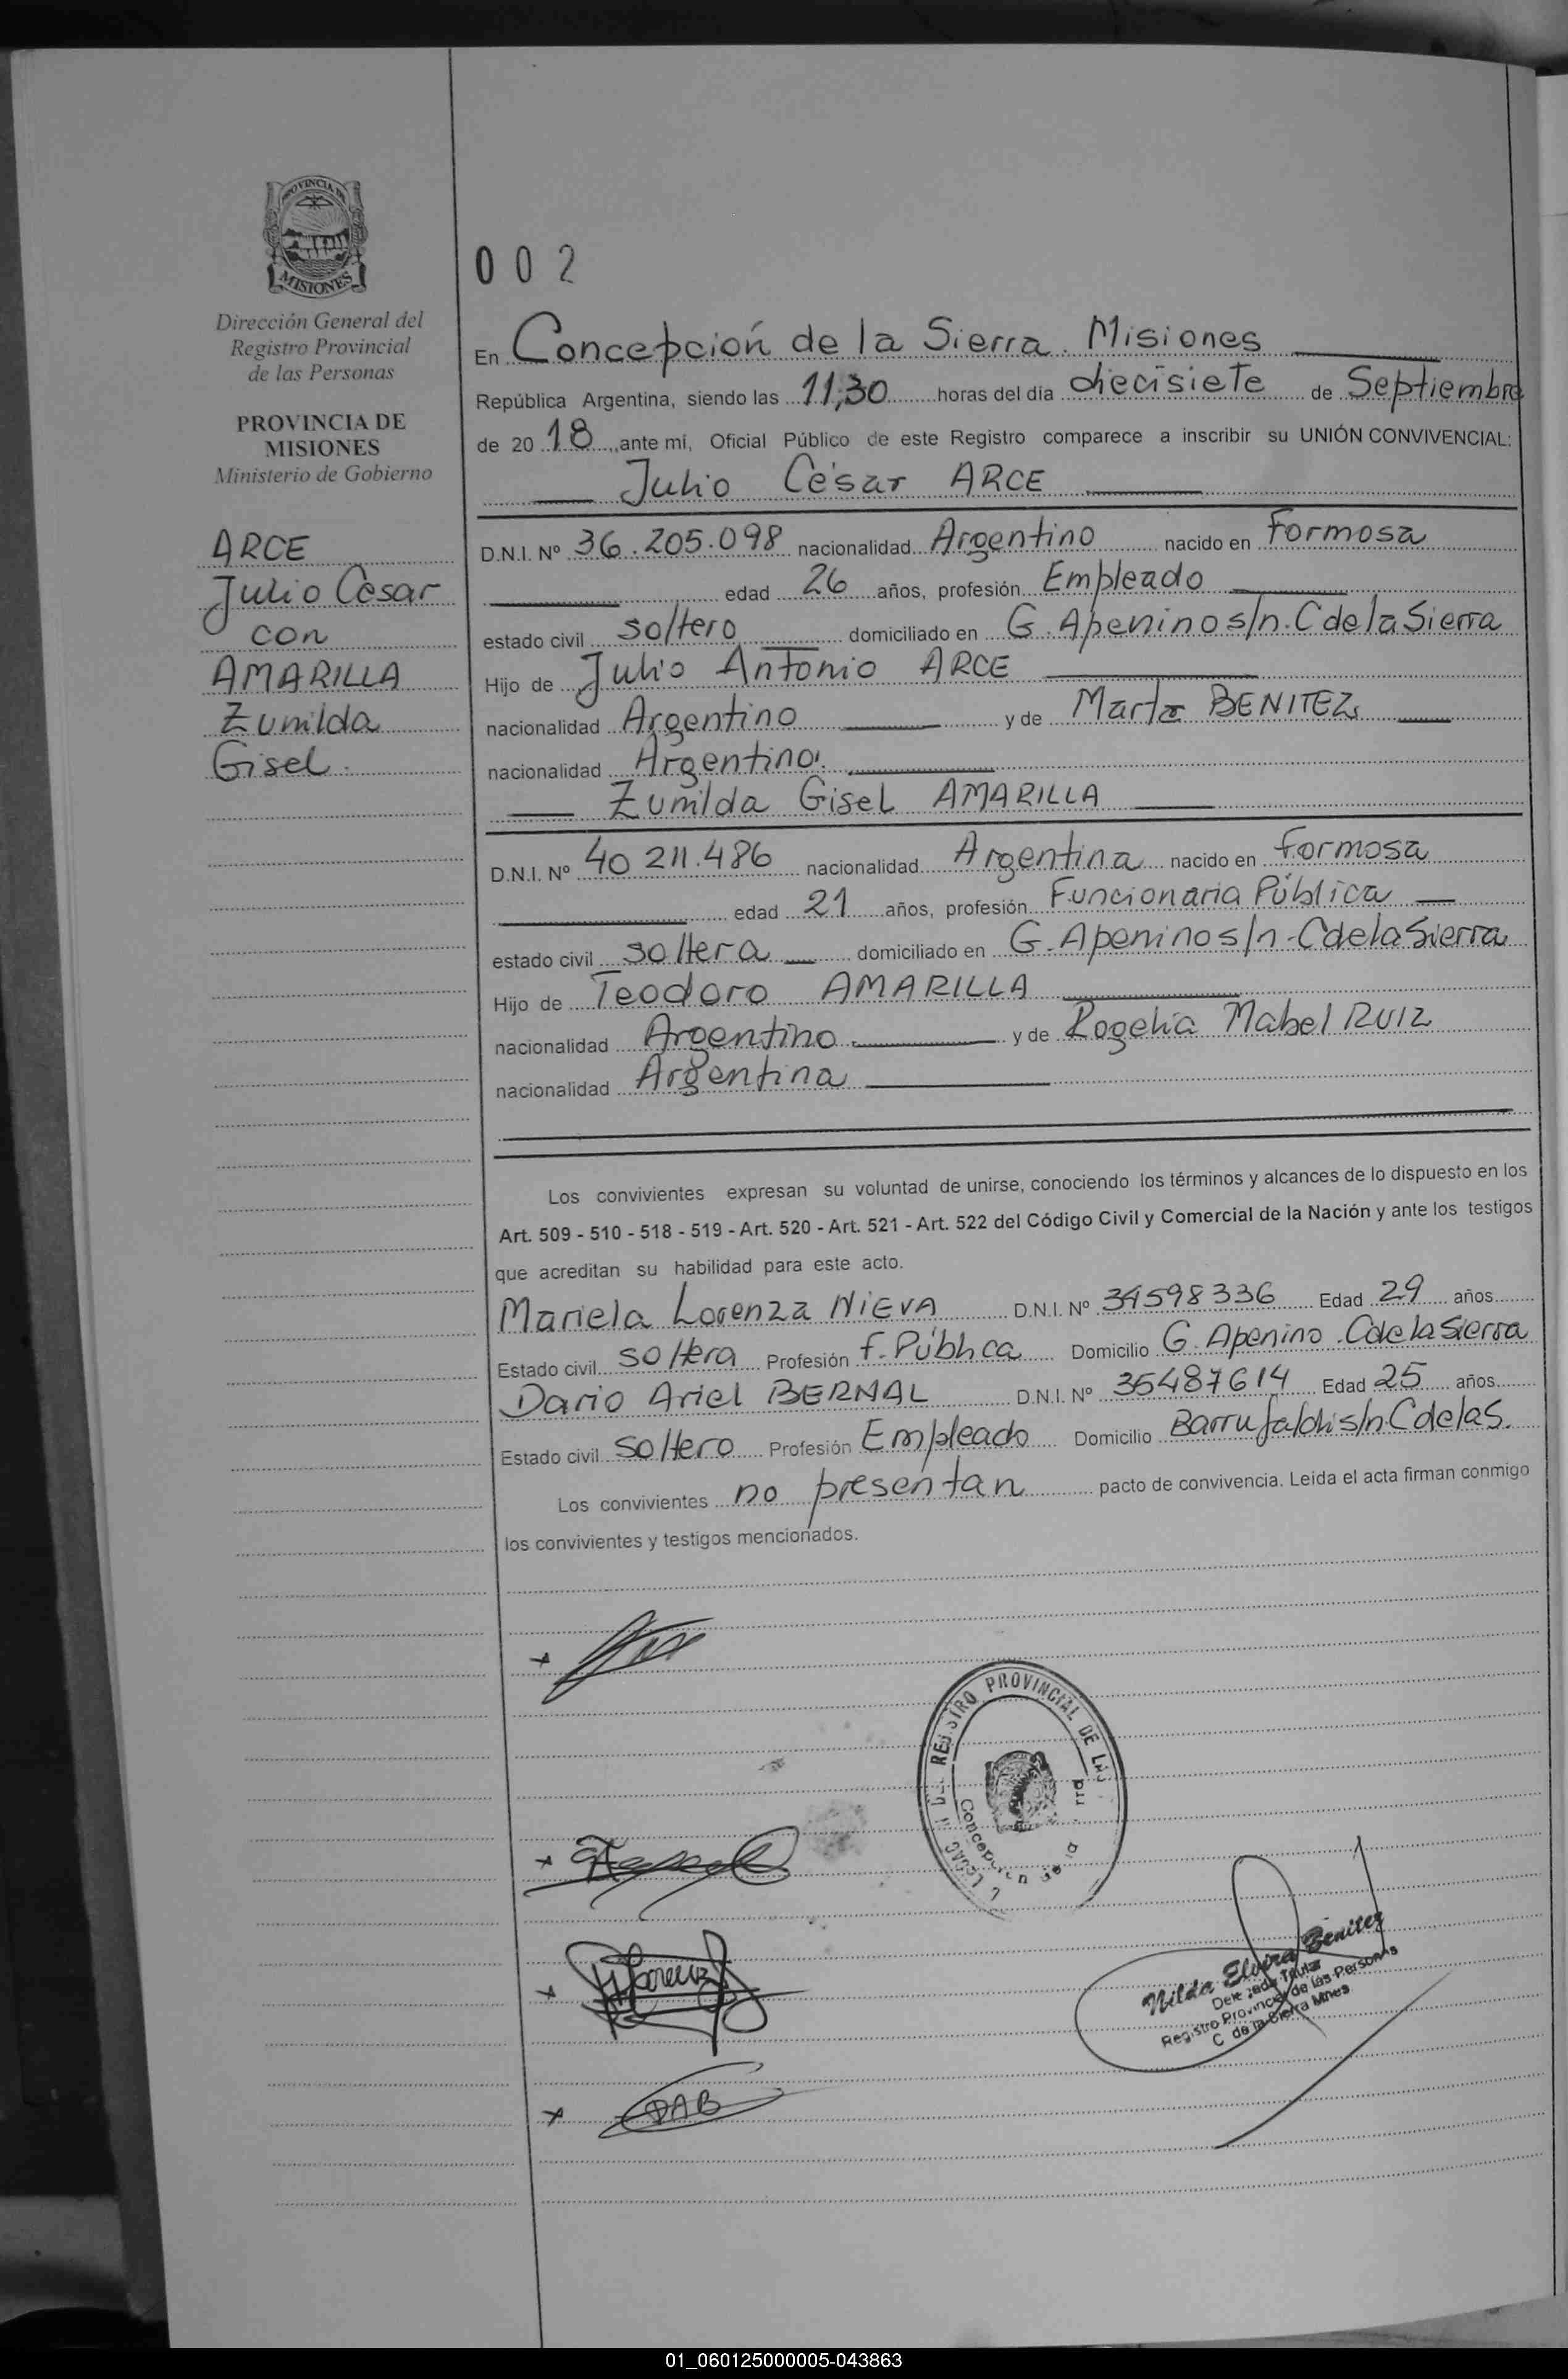 PROVINCIA DE
MISIONES
Dirección General del
Registro Provincial
de las Personas
PROVINCIA DE
MISIONES
Ministerio de Gobierno
ARCE
Julio César
con
AMARILLA
Zunilda
Gisel.
002
En Concepción de la Sierra. Misiones
República Argentina, siendo las 11,30 horas del día diecisiete de Septiembre
de 2018, ante mí, Oficial Público de este Registro comparece a inscribir su UNIÓN CONVIVENCIAL:
Julio César ARCE
D.N.I. Nº 36.205.098 nacionalidad Argentino nacido en Formosa
edad 26 años, profesión Empleado
estado civil soltero domiciliado en G. Apenino s/n. C de la Sierra
Hijo de Julio Antonio ARCE
nacionalidad Argentino y de Marta BENITEZ
nacionalidad Argentino.
Zunilda Gisel AMARILLA
D.N.I. Nº 40 211.486 nacionalidad Argentina nacido en Formosa
edad 21 años, profesión Funcionaria Pública
estado civil soltera domiciliado en G. Apenino s/n - C de la Sierra
Hijo de Teodoro AMARILLA
nacionalidad Argentino y de Rogelia Mabel RUIZ
nacionalidad Argentina
Los convivientes expresan su voluntad de unirse, conociendo los términos y alcances de lo dispuesto en los
Art. 509 - 510 - 518 - 519 - Art. 520 - Art. 521 - Art. 522 del Código Civil y Comercial de la Nación y ante los testigos
que acreditan su habilidad para este acto.
Mariela Lorenza NIEVA D.N.I. Nº 34598336 Edad 29 años
Estado civil soltera Profesión f. Pública Domicilio G. Apenino. C de la Sierra
Dario Ariel BERNAL D.N.I. Nº 35487614 Edad 25 años
Estado civil soltero Profesión Empleado Domicilio Barrufaldi s/n. C de la S.
Los convivientes no presentan pacto de convivencia. Leída el acta firman conmigo
los convivientes y testigos mencionados.
REGISTRO PROVINCIAL DE LAS
Concepción
Nilda Elvira Benitez
Delegada Titular
Registro Provincial de las Personas
C. de la Sierra Mnes
DAB
01_060125000005-043863